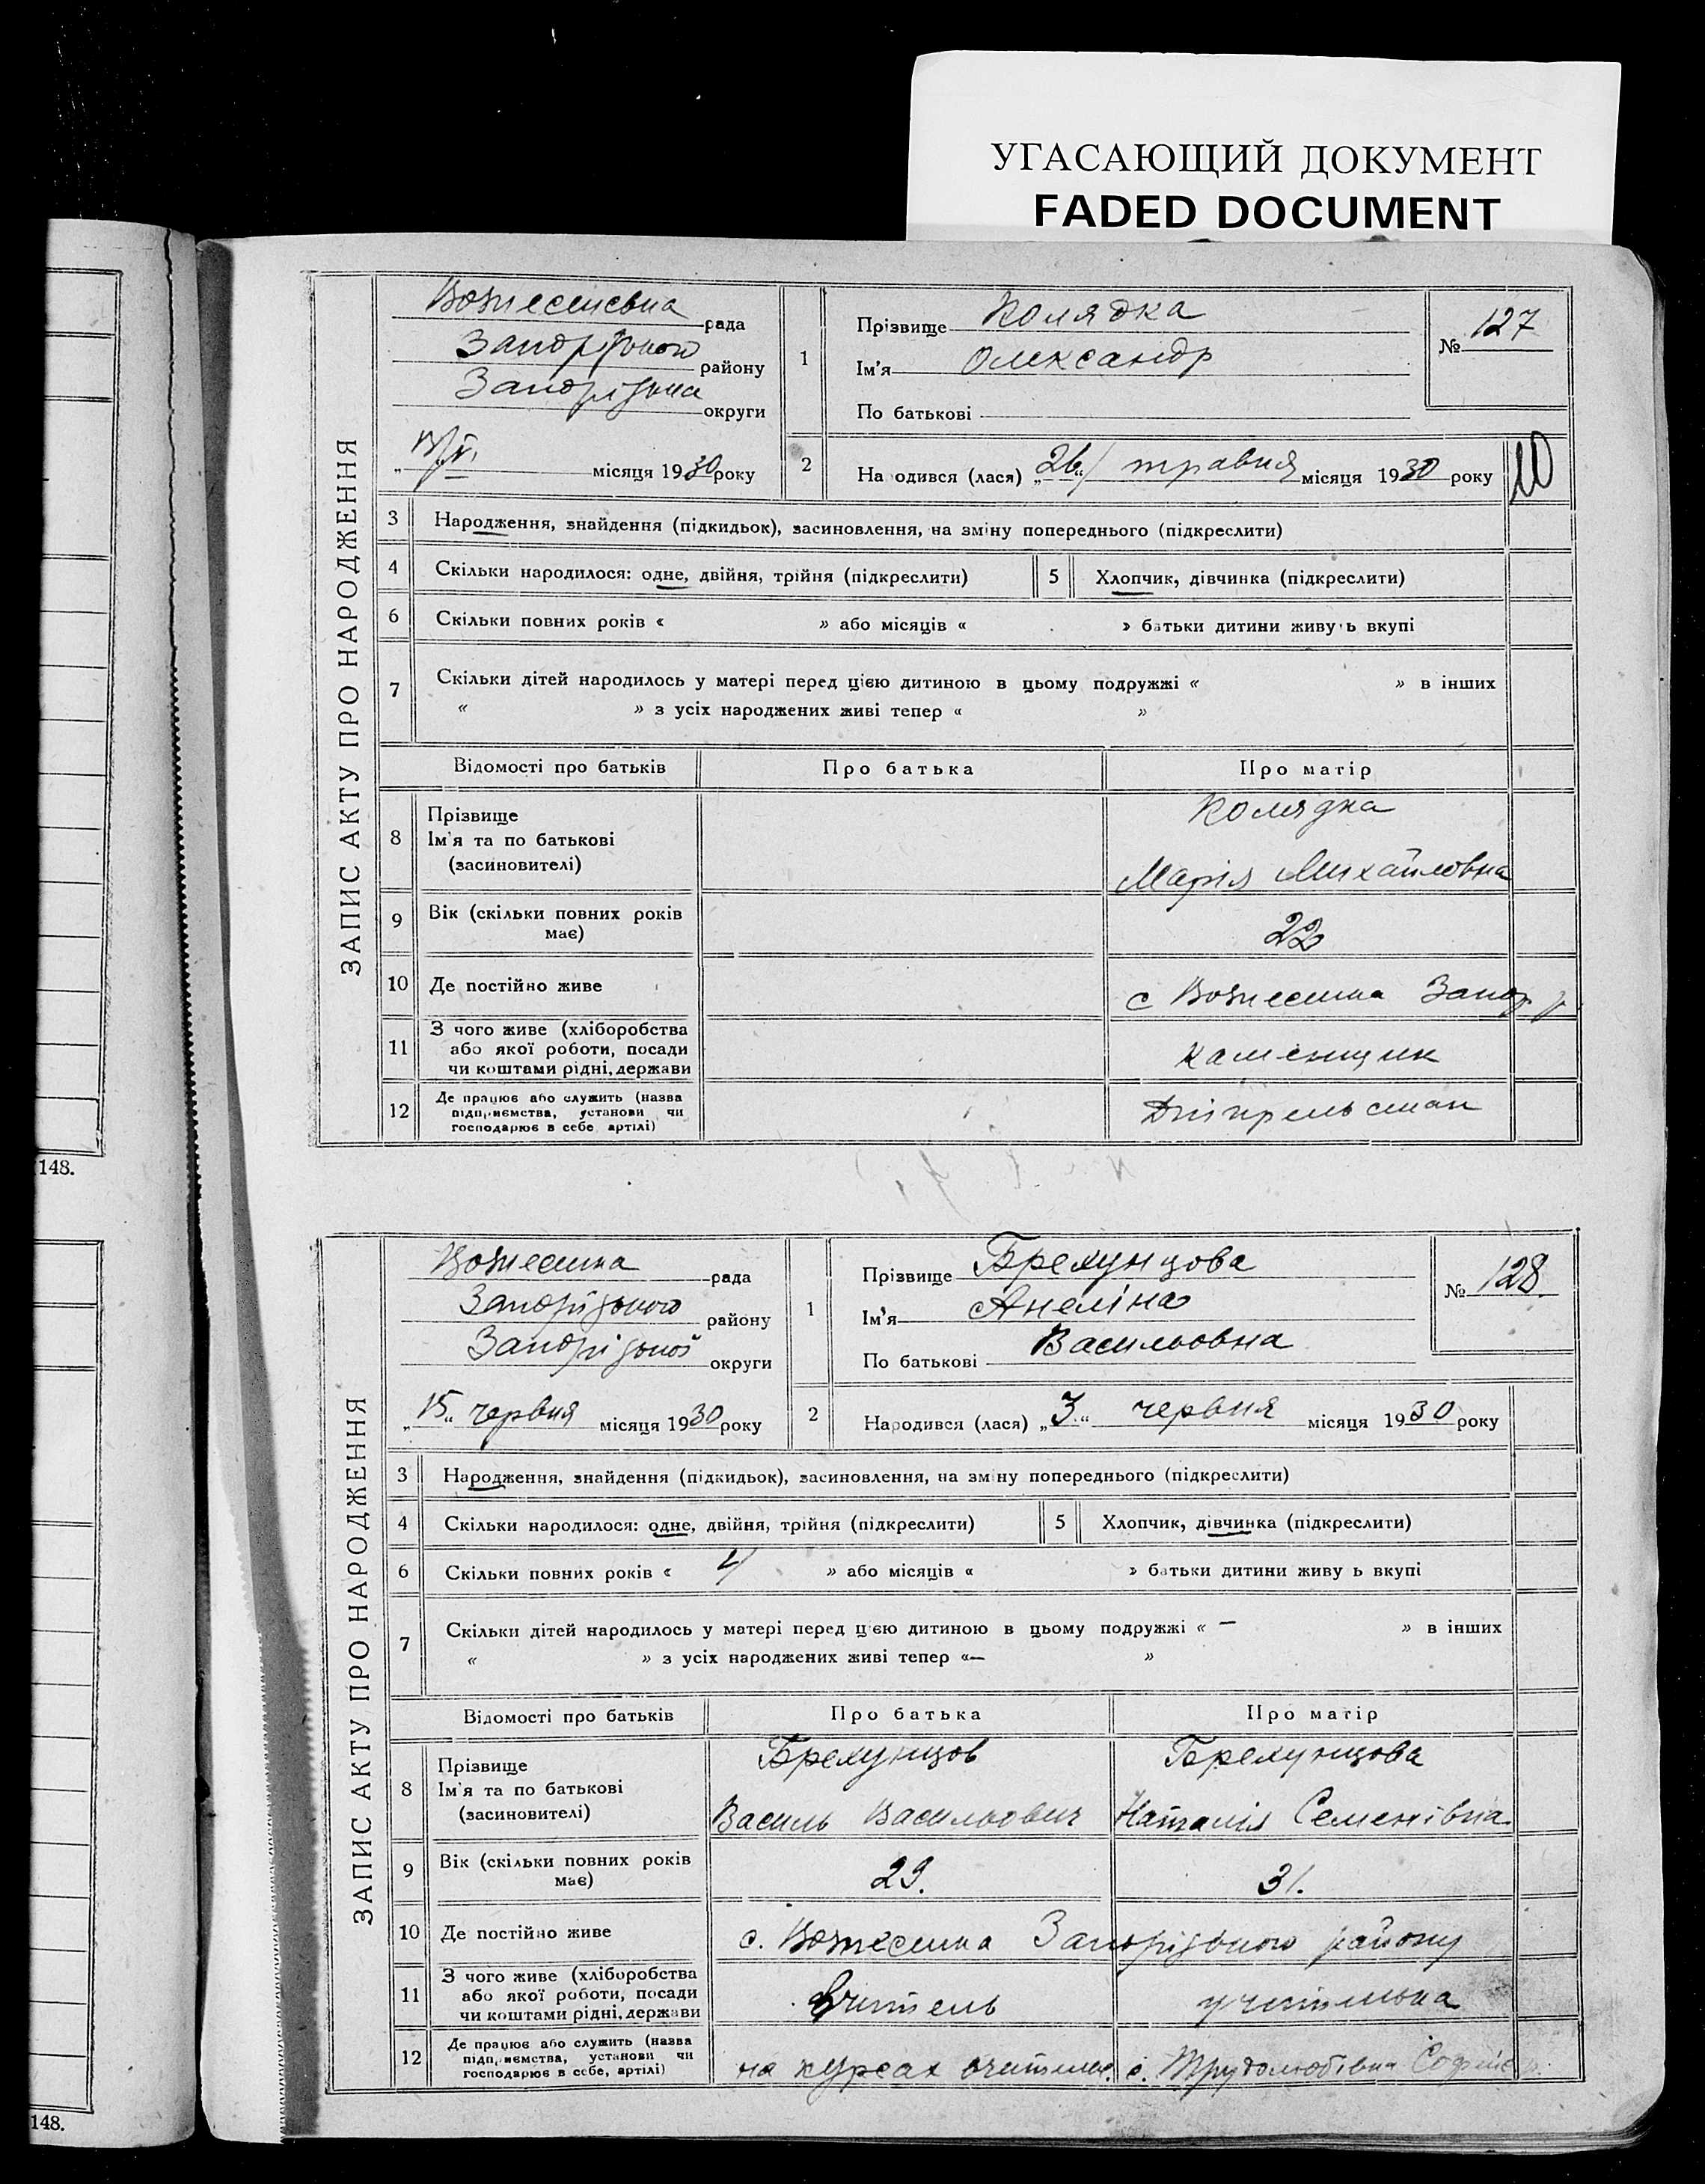 УГАСАЮЩИЙ ДОКУМЕНТ
FADED DOCUMENT
148.
148.
ЗАПИС АКТУ ПРО НАРОДЖЕННЯ
рада
району
округи
місяця 1930 року
1
Прізвище Колядка
Ім'я Олександр
По батькові
№ 127
2
На одився (лася) „26“ травня місяця 1930 року
10
3 Народження, знайдення (підкидьок), засиновлення, на зміну попереднього (підкреслити)
4 Скільки народилося: одне, двійня, трійня (підкреслити)
5 Хлопчик, дівчинка (підкреслити)
6 Скільки повних років « » або місяців « » батьки дитини живуть вкупі
7 Скільки дітей народилось у матері перед цією дитиною в цьому подружжі « » в інших
« » з усіх народжених живі тепер « »
Відомості про батьків Про батька Про матір
8 Прізвище
Ім'я та по батькові
(засиновителі)
Колядка
Марія Михайловна
9 Вік (скільки повних років
має)
22
10 Де постійно живе
с Вознесенка Запор р
11 З чого живе (хліборобства
або якої роботи, посади
чи коштами рідні, держави
каменщик
12 Де працює або служить (назва
підприємства, установи чи
господарює в себе, артілі)
ЗАПИС АКТУ ПРО НАРОДЖЕННЯ
Вознесенка рада
Запорізького району
Запорізької округи
„15“ червня місяця 1930 року
1
Прізвище Брехунцова
Ім'я Анеліна
По батькові Васильовна
№ 128.
2
Народився (лася) „3“ червня місяця 1930 року
3 Народження, знайдення (підкидьок), засиновлення, на зміну попереднього (підкреслити)
4 Скільки народилося: одне, двійня, трійня (підкреслити)
5 Хлопчик, дівчинка (підкреслити)
6 Скільки повних років « 4 » або місяців « » батьки дитини живу ь вкупі
7 Скільки дітей народилось у матері перед цією дитиною в цьому подружжі « — » в інших
« » з усіх народжених живі тепер «— »
Відомості про батьків Про батька Про матір
8 Прізвище
Ім'я та по батькові
(засиновителі)
Брехунцов
Василь Васильович
Брехунцова
Наталія Семенівна
9 Вік (скільки повних років
має)
29.
31.
10 Де постійно живе
с. Вознесенка Запорізького району
11 З чого живе (хліборобства
або якої роботи, посади
чи коштами рідні, держави
Вчитель
учителька
12 Де працює або служить (назва
підприємства, установи чи
господарює в себе, артілі)
на курсах
с. Трудолюбівка